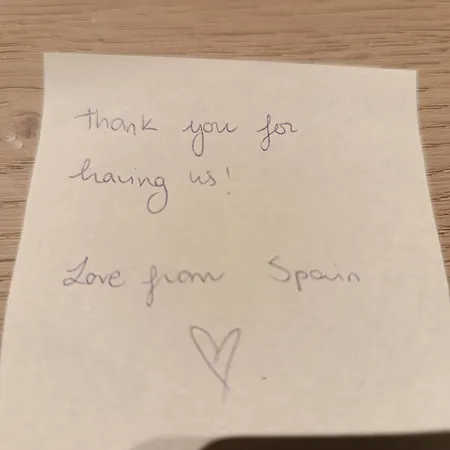 thank you for
having us!
Love from Spain